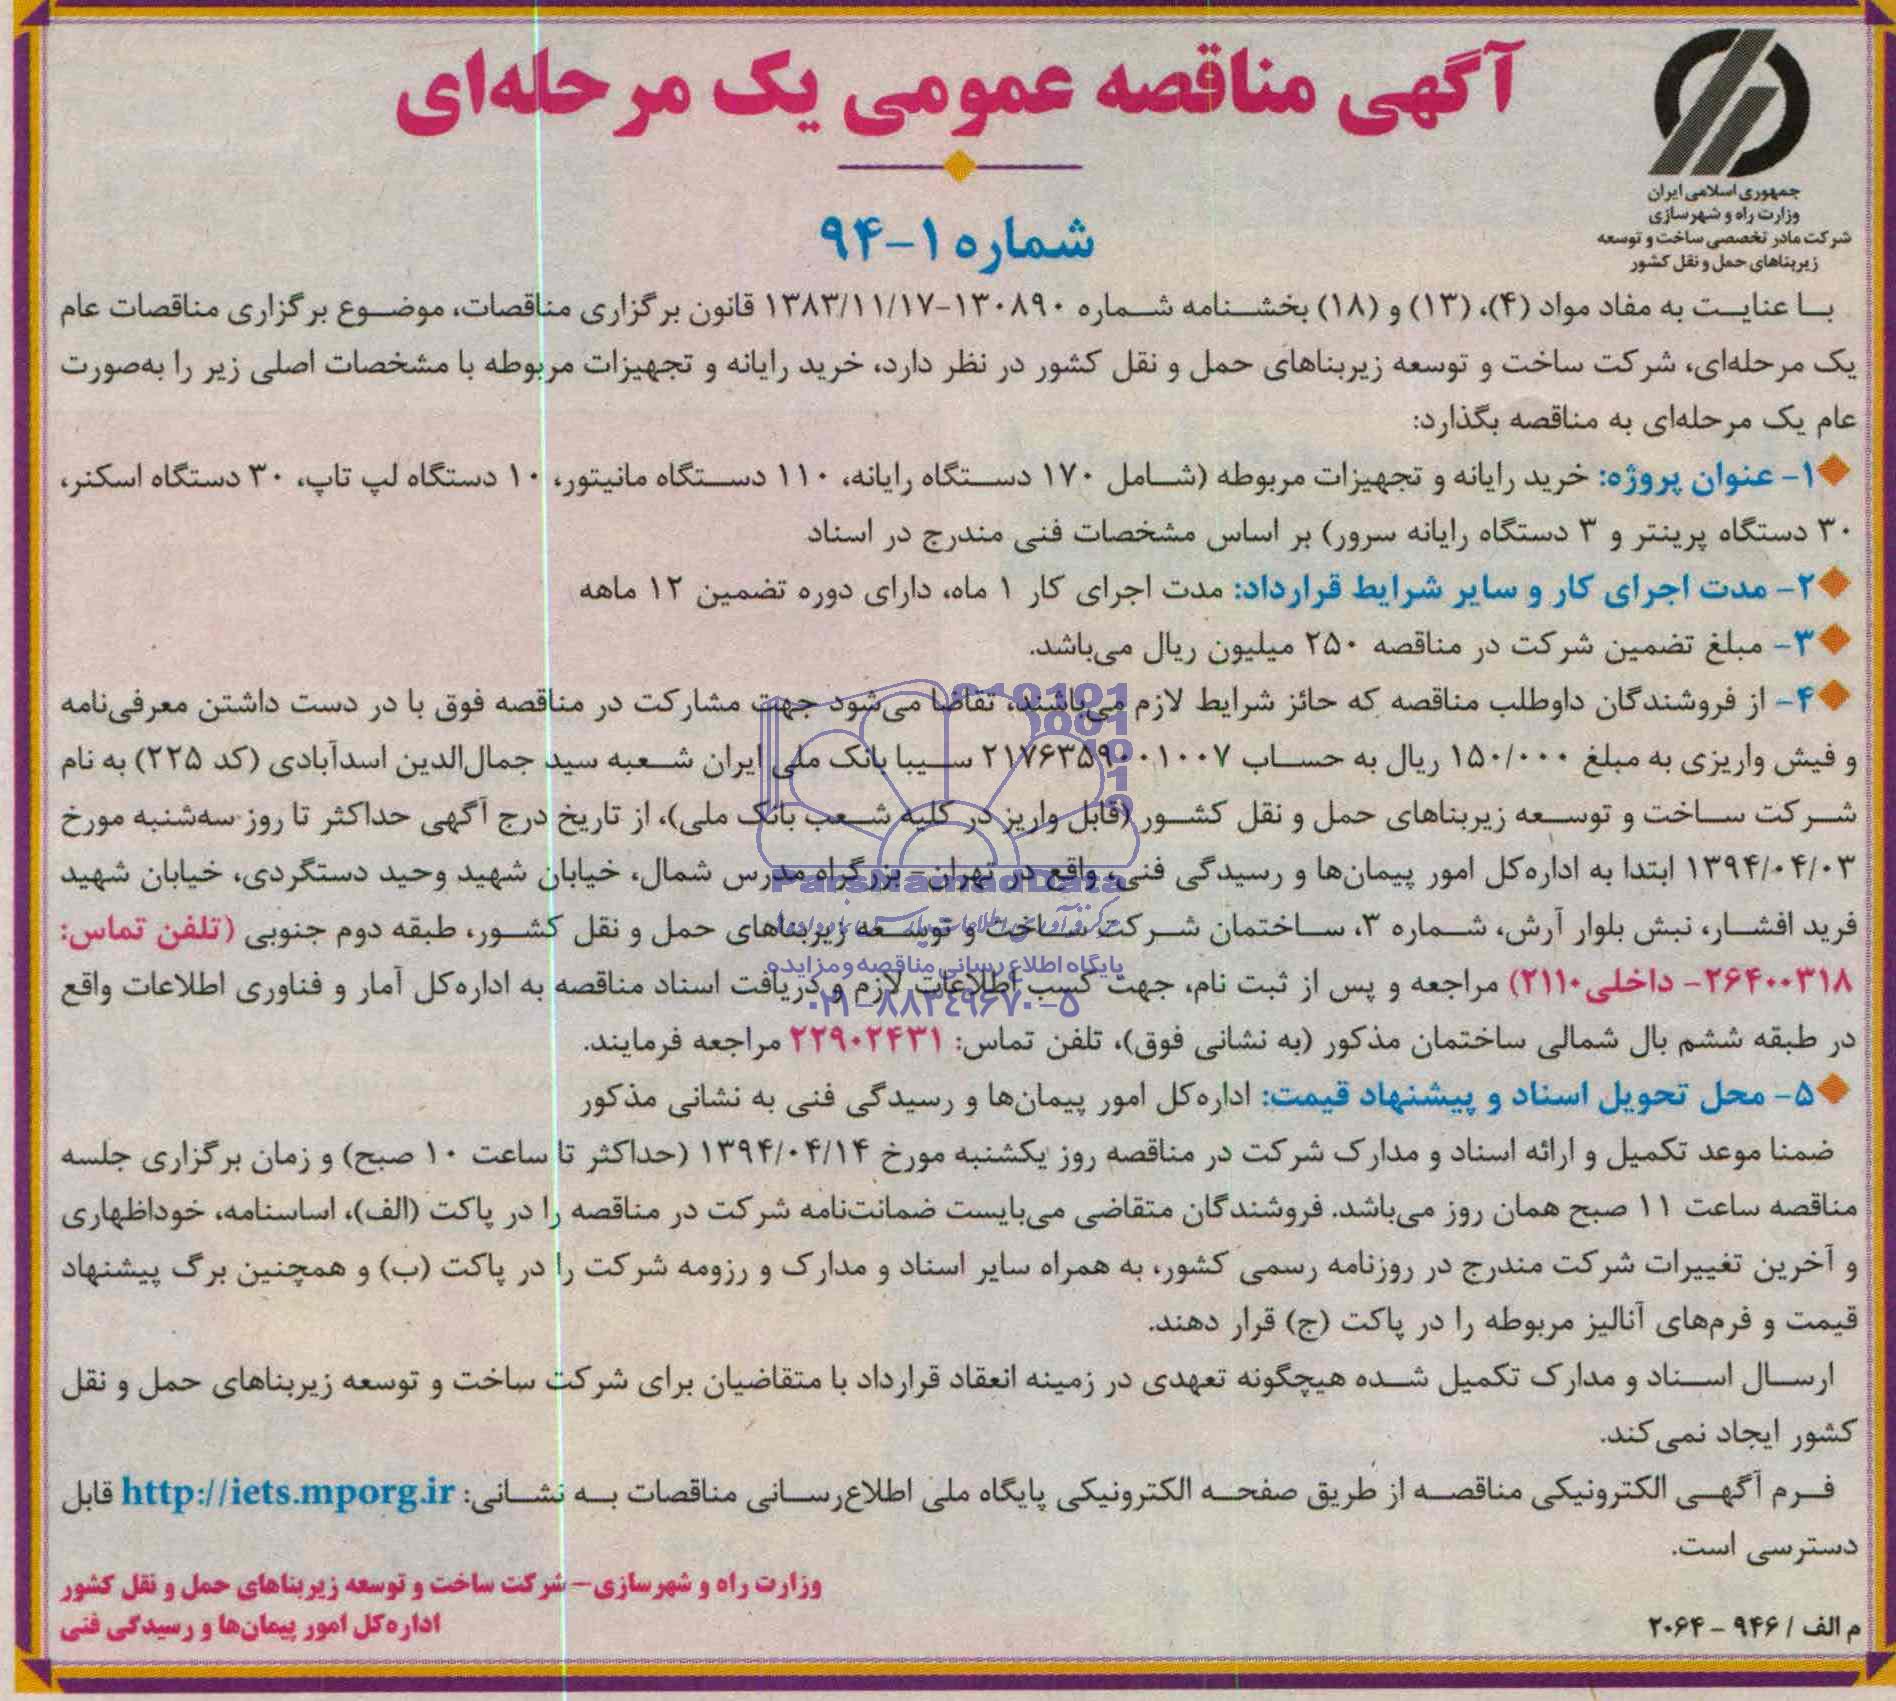 آگهی مناقصه عمومی یک مرحله‌ای
جمهوری اسلامی ایران
وزارت راه و شهرسازی
شرکت مادر تخصصی ساخت و توسعه
زیربناهای حمل و نقل کشور
شماره ۱-۹۴
با عنایت به مفاد مواد (۴)، (۱۳) و (۱۸) بخشنامه شماره ۱۳۰۸۹۰-۱۳۸۳/۱۱/۱۷ قانون برگزاری مناقصات، موضوع برگزاری مناقصات عام
یک مرحله‌ای، شرکت ساخت و توسعه زیربناهای حمل و نقل کشور در نظر دارد، خرید رایانه و تجهیزات مربوطه با مشخصات اصلی زیر را به‌صورت
عام یک مرحله‌ای به مناقصه بگذارد:
۱- عنوان پروژه: خرید رایانه و تجهیزات مربوطه (شامل ۱۷۰ دستگاه رایانه، ۱۱۰ دستگاه مانیتور، ۱۰ دستگاه لپ تاپ، ۳۰ دستگاه اسکنر،
۳۰ دستگاه پرینتر و ۳ دستگاه رایانه سرور) بر اساس مشخصات فنی مندرج در اسناد
۲- مدت اجرای کار و سایر شرایط قرارداد: مدت اجرای کار ۱ ماه، دارای دوره تضمین ۱۲ ماهه
۳- مبلغ تضمین شرکت در مناقصه ۲۵۰ میلیون ریال می‌باشد.
۴- از فروشندگان داوطلب مناقصه که حائز شرایط لازم می‌باشند، تقاضا می‌شود جهت مشارکت در مناقصه فوق با در دست داشتن معرفی‌نامه
و فیش واریزی به مبلغ ۱۵۰/۰۰۰ ریال به حساب ۲۱۷۶۳۵۹۰۰۱۰۰۷ سیبا بانک ملی ایران شعبه سید جمال‌الدین اسدآبادی (کد ۲۲۵) به نام
شرکت ساخت و توسعه زیربناهای حمل و نقل کشور (قابل واریز در کلیه شعب بانک ملی)، از تاریخ درج آگهی حداکثر تا روز سه‌شنبه مورخ
۱۳۹۴/۰۴/۰۳ ابتدا به اداره‌کل امور پیمان‌ها و رسیدگی فنی، واقع در تهران- بزرگراه مدرس شمال، خیابان شهید وحید دستگردی، خیابان شهید
فرید افشار، نبش بلوار آرش، شماره ۳، ساختمان شرکت ساخت و توسعه زیربناهای حمل و نقل کشور، طبقه دوم جنوبی (تلفن تماس:
۲۶۴۰۰۳۱۸- داخلی ۲۱۱۰) مراجعه و پس از ثبت نام، جهت کسب اطلاعات لازم و دریافت اسناد مناقصه به اداره‌کل آمار و فناوری اطلاعات واقع
در طبقه ششم بال شمالی ساختمان مذکور (به نشانی فوق)، تلفن تماس: ۲۲۹۰۲۴۳۱ مراجعه فرمایند.
۵- محل تحویل اسناد و پیشنهاد قیمت: اداره‌کل امور پیمان‌ها و رسیدگی فنی به نشانی مذکور
ضمنا موعد تکمیل و ارائه اسناد و مدارک شرکت در مناقصه روز یکشنبه مورخ ۱۳۹۴/۰۴/۱۴ (حداکثر تا ساعت ۱۰ صبح) و زمان برگزاری جلسه
مناقصه ساعت ۱۱ صبح همان روز می‌باشد. فروشندگان متقاضی می‌بایست ضمانت‌نامه شرکت در مناقصه را در پاکت (الف)، اساسنامه، خوداظهاری
و آخرین تغییرات شرکت مندرج در روزنامه رسمی کشور، به همراه سایر اسناد و مدارک و رزومه شرکت را در پاکت (ب) و همچنین برگ پیشنهاد
قیمت و فرم‌های آنالیز مربوطه را در پاکت (ج) قرار دهند.
ارسال اسناد و مدارک تکمیل شده هیچگونه تعهدی در زمینه انعقاد قرارداد با متقاضیان برای شرکت ساخت و توسعه زیربناهای حمل و نقل
کشور ایجاد نمی‌کند.
فرم آگهی الکترونیکی مناقصه از طریق صفحه الکترونیکی پایگاه ملی اطلاع‌رسانی مناقصات به نشانی: http://iets.mporg.ir قابل
دسترسی است.
وزارت راه و شهرسازی- شرکت ساخت و توسعه زیربناهای حمل و نقل کشور
اداره‌کل امور پیمان‌ها و رسیدگی فنی
م الف / ۹۴۶ - ۲۰۶۴
ParsNamadData
پایگاه اطلاع رسانی مناقصه و مزایده
۰۲۱-۸۸۳۴۹۶۷۰-۵